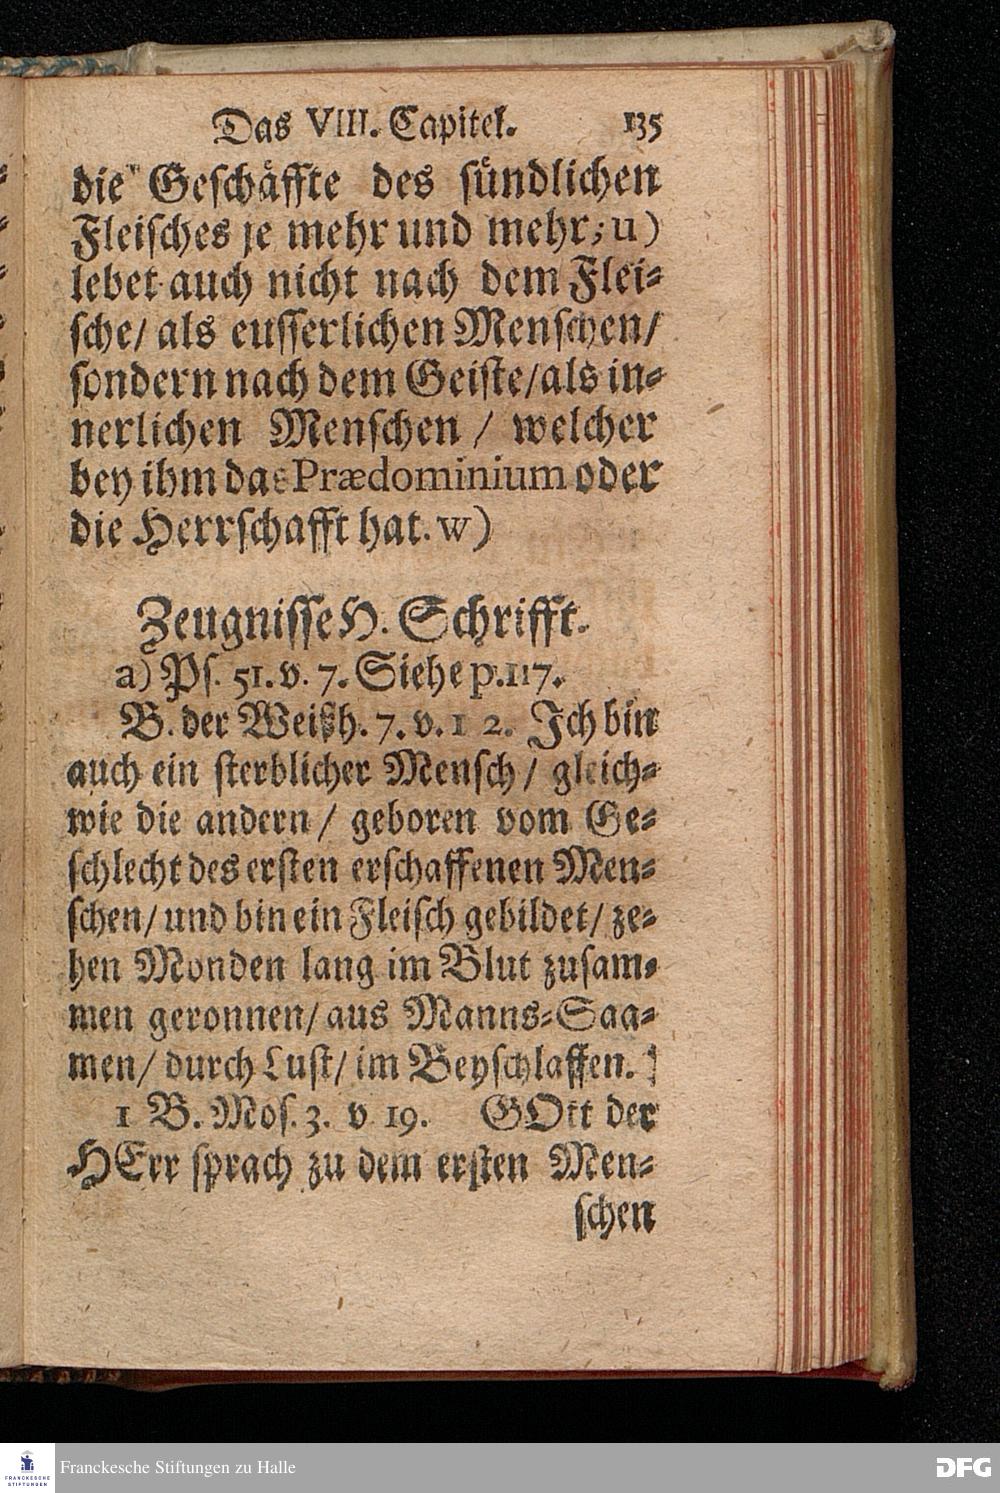 Das VIII. Capitel. 135
die Geschäffte des sündlichen
Fleisches je mehr und mehr; u)
lebet auch nicht nach dem Flei-
sche/ als eusserlichen Menschen/
sondern nach dem Geiste/ als in-
nerlichen Menschen / welcher
bey ihm das Prædominium oder
die Herrschafft hat. w)
Zeugnisse H. Schrifft.
a) Ps. 51. v. 7. Siehe p. 117.
B. der Weißh. 7. v. 1 2. Ich bin
auch ein sterblicher Mensch / gleich-
wie die andern / geboren vom Ge-
schlecht des ersten erschaffenen Men-
schen/ und bin ein Fleisch gebildet/ ze-
hen Monden lang im Blut zusam-
men geronnen/ aus Manns-Saa-
men/ durch Lust/ im Beyschlaffen.
1 B. Mos. 3. v 19. GOtt der
HErr sprach zu dem ersten Men-
schen
Franckesche Stiftungen zu Halle
DFG
FRANCKESCHE
STIFTUNGEN